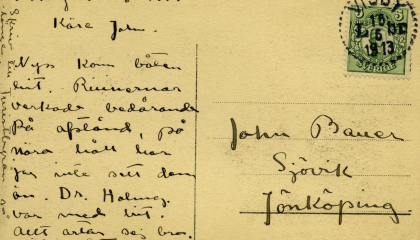 Käre John.
Nyss kom båten
hit. Ruinerna
verkade bedårande
På afstånd, på
nära håll har
jag inte sett dem
än. Dr. Holmqv.
var med hit.
Allt artar sig bra.
Skriv till
VISBY
5
15
5
1913
John Bauer
Sjövik
Jönköping